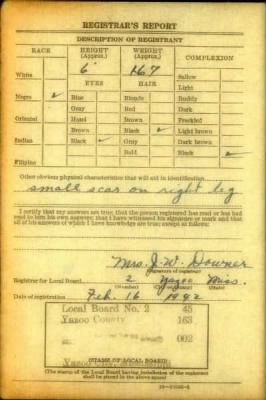 REGISTRAR'S REPORT
DESCRIPTION OF REGISTRANT
RACE HEIGHT (Approx.) WEIGHT (Approx.) COMPLEXION
6' 167
White EYES HAIR Sallow
Light
Negro ✓ Blue Blonde Ruddy
Gray Red Dark
Oriental Hazel Brown Freckled
Brown Black ✓ Light brown
Indian Black ✓ Gray Dark brown
Bald Black ✓
Filipino
Other obvious physical characteristics that will aid in identification
small scar on right leg
I certify that my answers are true; that the person registered has read or has had
read to him his own answers; that I have witnessed his signature or mark and that
all of his answers of which I have knowledge are true, except as follows:
Mrs. J. W. Downer
(Signature of registrar)
Registrar for Local Board 2 Yazoo Miss.
(Number) (City or county) (State)
Date of registration Feb. 16 1942
Local Board No. 2 45
Yazoo County 163
002
(STAMP OF LOCAL BOARD)
(The stamp of the Local Board having jurisdiction of the registrant
shall be placed in the above space)